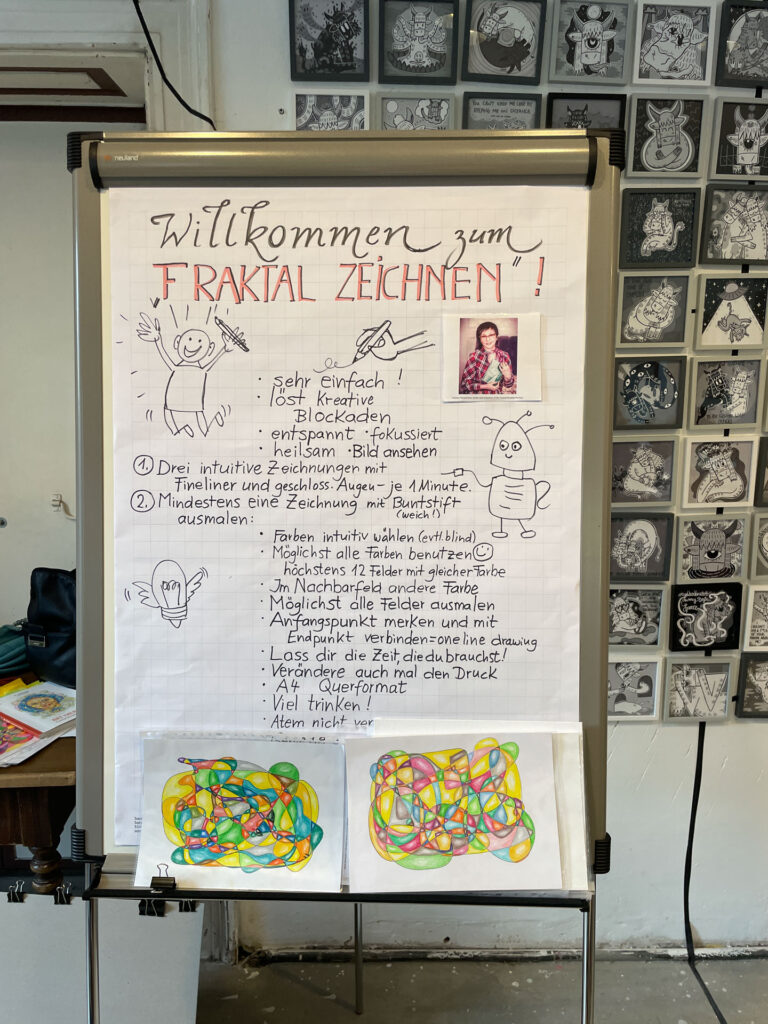 neuland
Willkommen zum
"FRAKTAL ZEICHNEN"!
· sehr einfach !
· löst kreative
Blockaden
· entspannt · fokussiert
· heilsam · Bild ansehen
1. Drei intuitive Zeichnungen mit
Fineliner und geschloss. Augen - je 1 Minute.
2. Mindestens eine Zeichnung mit Buntstift
(weich!)
ausmalen:
· Farben intuitiv wählen (evtl. blind)
· Möglichst alle Farben benutzen
höchstens 12 Felder mit gleicher Farbe
· Im Nachbarfeld andere Farbe
· Möglichst alle Felder ausmalen
· Anfangspunkt merken und mit
Endpunkt verbinden = one line drawing
· Lass dir die Zeit, die du brauchst!
· Verändere auch mal den Druck
· A4 Querformat
· Viel trinken !
· Atem nicht ver